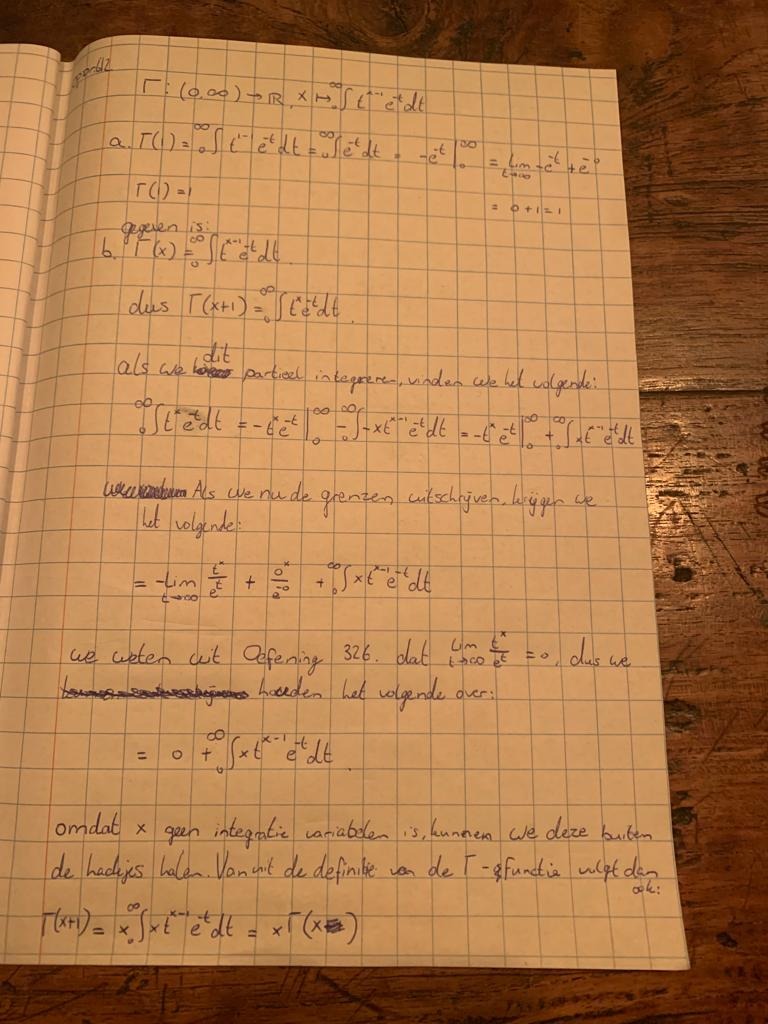 Γ: (0,∞) → ℝ, x ↦ ₀∞∫ t^{x-1} e^{-t} dt
a. Γ(1) = ₀∞∫ t^{1-1} e^{-t} dt = ₀∞∫ e^{-t} dt = -e^{-t} |₀∞ = lim_{t→∞} -e^{-t} + e^{-0}
Γ(1) = 1
= 0+1=1
gegeven is:
b. Γ(x) = ₀∞∫ t^{x-1} e^{-t} dt.
dus Γ(x+1) = ₀∞∫ t^x e^{-t} dt.
als we dit partieel integreren, vinden we het volgende:
₀∞∫ t^x e^{-t} dt = -t^x e^{-t} |₀∞ - ₀∞∫ -x t^{x-1} e^{-t} dt = -t^x e^{-t} |₀∞ + ₀∞∫ x t^{x-1} e^{-t} dt
Als we nu de grenzen uitschrijven, krijgen we
het volgende:
= -lim_{t→∞} t^x/e^t + 0^x/e^{-0} + ₀∞∫ x t^{x-1} e^{-t} dt
we weten uit Oefening 326. dat lim_{t→∞} t^x/e^t = 0, dus we
houden het volgende over:
= 0 + ₀∞∫ x t^{x-1} e^{-t} dt.
omdat x geen integratie variabelen is, kunnen we deze buiten
de haakjes halen. Vanuit de definitie van de Γ-functie volgt dan
ook:
Γ(x+1) = x ₀∞∫ x t^{x-1} e^{-t} dt = xΓ(x)